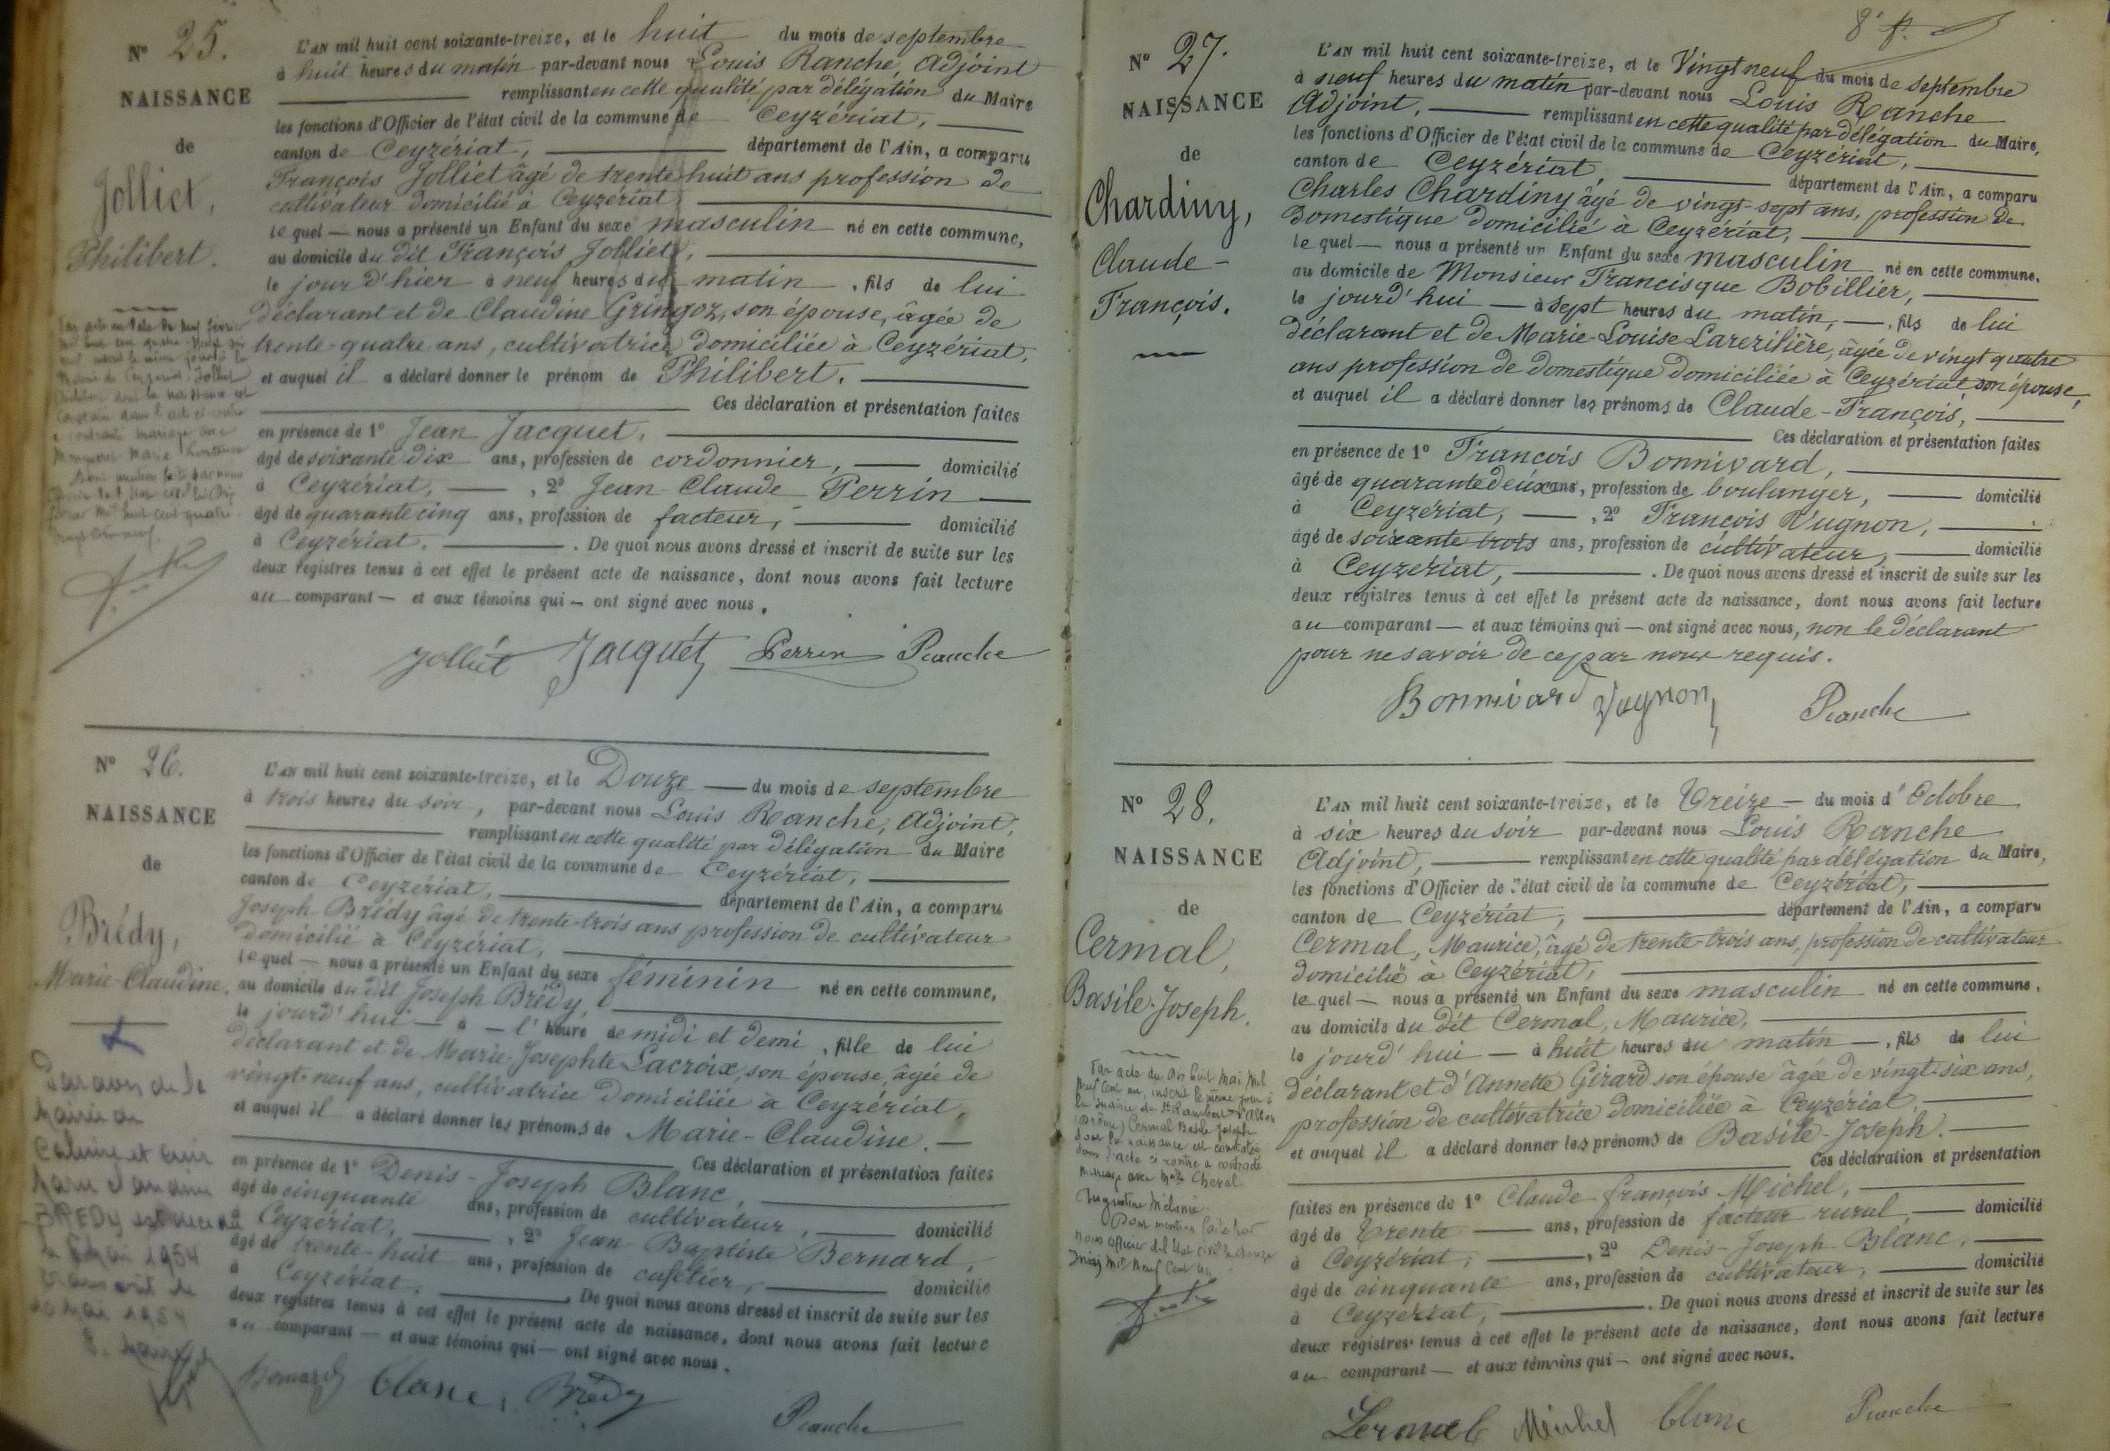 N° 25.
NAISSANCE
de
Jolliet,
Philibert.
L'AN mil huit cent soixante-treize, et le huit du mois de septembre
à huit heures du matin par-devant nous Louis Ranche, Adjoint
remplissant en cette qualité par délégation du Maire
les fonctions d'Officier de l'état civil de la commune de Ceyzériat,
canton de Ceyzériat, département de l'Ain, a comparu
François Jolliet âgé de trente huit ans profession de
cultivateur domicilié à Ceyzériat,
lequel nous a présenté un Enfant du sexe masculin né en cette commune,
au domicile du dit François Jolliet,
le jour d'hier à neuf heures du matin, fils de lui
déclarant et de Claudine Gringoz, son épouse, âgée de
trente-quatre ans, cultivatrice domiciliée à Ceyzériat,
et auquel il a déclaré donner le prénom de Philibert.
Ces déclaration et présentation faites
en présence de 1° Jean Jacquet,
âgé de soixante dix ans, profession de cordonnier, domicilié
à Ceyzériat, , 2° Jean Claude Perrin
âgé de quarante cinq ans, profession de facteur, domicilié
à Ceyzériat. . De quoi nous avons dressé et inscrit de suite sur les
deux registres tenus à cet effet le présent acte de naissance, dont nous avons fait lecture
au comparant — et aux témoins qui — ont signé avec nous.
Jolliet Jacquet Perrin Ranche
N° 26.
NAISSANCE
de
Brédy,
Marie-Claudine.
mairie de
Caluire et Cuire
Marie Claudine
BREDY est décédée
1954
mai 1954
L'AN mil huit cent soixante-treize, et le Douze — du mois de septembre
à trois heures du soir, par-devant nous Louis Ranche, Adjoint,
remplissant en cette qualité par délégation du Maire
les fonctions d'Officier de l'état civil de la commune de Ceyzériat,
canton de Ceyzériat, département de l'Ain, a comparu
Joseph Brédy âgé de trente-trois ans profession de cultivateur
domicilié à Ceyzériat,
lequel — nous a présenté un Enfant du sexe féminin né en cette commune,
au domicile du dit Joseph Brédy,
le jourd'hui — à — l'heure de midi et demi, fille de lui
déclarant et de Marie-Josephte Lacroix, son épouse, âgée de
vingt-neuf ans, cultivatrice domiciliée à Ceyzériat,
et auquel il a déclaré donner les prénoms de Marie-Claudine. —
Ces déclaration et présentation faites
en présence de 1° Denis-Joseph Blanc,
âgé de cinquante ans, profession de cultivateur, domicilié
à Ceyzériat, , 2° Jean Baptiste Bernard,
âgé de trente-huit ans, profession de cafetier, domicilié
à Ceyzériat. . De quoi nous avons dressé et inscrit de suite sur les
deux registres tenus à cet effet le présent acte de naissance, dont nous avons fait lecture
au comparant — et aux témoins qui — ont signé avec nous.
Bernard Blanc, Brédy
Ranche
N° 27.
NAISSANCE
de
Chardiny,
Claude-
François.
L'AN mil huit cent soixante-treize, et le Vingt neuf du mois de septembre
à neuf heures du matin par-devant nous Louis Ranche
Adjoint, remplissant en cette qualité par délégation du Maire,
les fonctions d'Officier de l'état civil de la commune de Ceyzériat,
canton de Ceyzériat, département de l'Ain, a comparu
Charles Chardiny âgé de vingt-sept ans, profession de
Domestique domicilié à Ceyzériat,
lequel — nous a présenté un Enfant du sexe masculin né en cette commune,
au domicile de Monsieur Francisque Bobillier,
le jourd'hui — à sept heures du matin, —, fils de lui
déclarant et de Marie-Louise Larezilière, âgée de vingt quatre
ans profession de domestique domiciliée à Ceyzériat, son épouse,
et auquel il a déclaré donner les prénoms de Claude-François,
Ces déclaration et présentation faites
en présence de 1° François Bonnivard,
âgé de quarante deux ans, profession de boulanger, domicilié
à Ceyzériat, , 2° François Vugnon,
âgé de soixante trois ans, profession de cultivateur, domicilié
à Ceyzériat, . De quoi nous avons dressé et inscrit de suite sur les
deux registres tenus à cet effet le présent acte de naissance, dont nous avons fait lecture
au comparant — et aux témoins qui — ont signé avec nous, non le déclarant
pour ne savoir de ce par nous requis.
Bonnivard Vugnon Ranche
N° 28.
NAISSANCE
de
Cermal,
Basile-Joseph.
Par acte du dix huit Mai Mil
neuf Cent un, inscrit le même jour à
la mairie de St Rambert d'Albon
(Drôme) Cermal Basile Joseph
dont la naissance est constatée
dans l'acte ci contre a contracté
mariage avec Melle Cheval
Augustine Mélanie.
Dont mention faite par
nous officier de l'Etat civil
Mil Neuf Cent un
L'AN mil huit cent soixante-treize, et le Treize — du mois d'Octobre
à six heures du soir par-devant nous Louis Ranche
Adjoint, remplissant en cette qualité par délégation du Maire,
les fonctions d'Officier de l'état civil de la commune de Ceyzériat,
canton de Ceyzériat, département de l'Ain, a comparu
Cermal, Maurice, âgé de trente-trois ans, profession de cultivateur
domicilié à Ceyzériat,
lequel — nous a présenté un Enfant du sexe masculin né en cette commune,
au domicile du dit Cermal, Maurice,
le jourd'hui — à huit heures du matin —, fils de lui
déclarant et d'Annette Girard son épouse âgée de vingt-six ans,
profession de cultivatrice domiciliée à Ceyzériat,
et auquel il a déclaré donner les prénoms de Basile-Joseph.
Ces déclaration et présentation
faites en présence de 1° Claude françois Michel,
âgé de Trente ans, profession de facteur rural, domicilié
à Ceyzériat, , 2° Denis-Joseph Blanc,
âgé de cinquante ans, profession de cultivateur, domicilié
à Ceyzériat, . De quoi nous avons dressé et inscrit de suite sur les
deux registres tenus à cet effet le présent acte de naissance, dont nous avons fait lecture
au comparant — et aux témoins qui — ont signé avec nous.
Cermal Michel Blanc Ranche